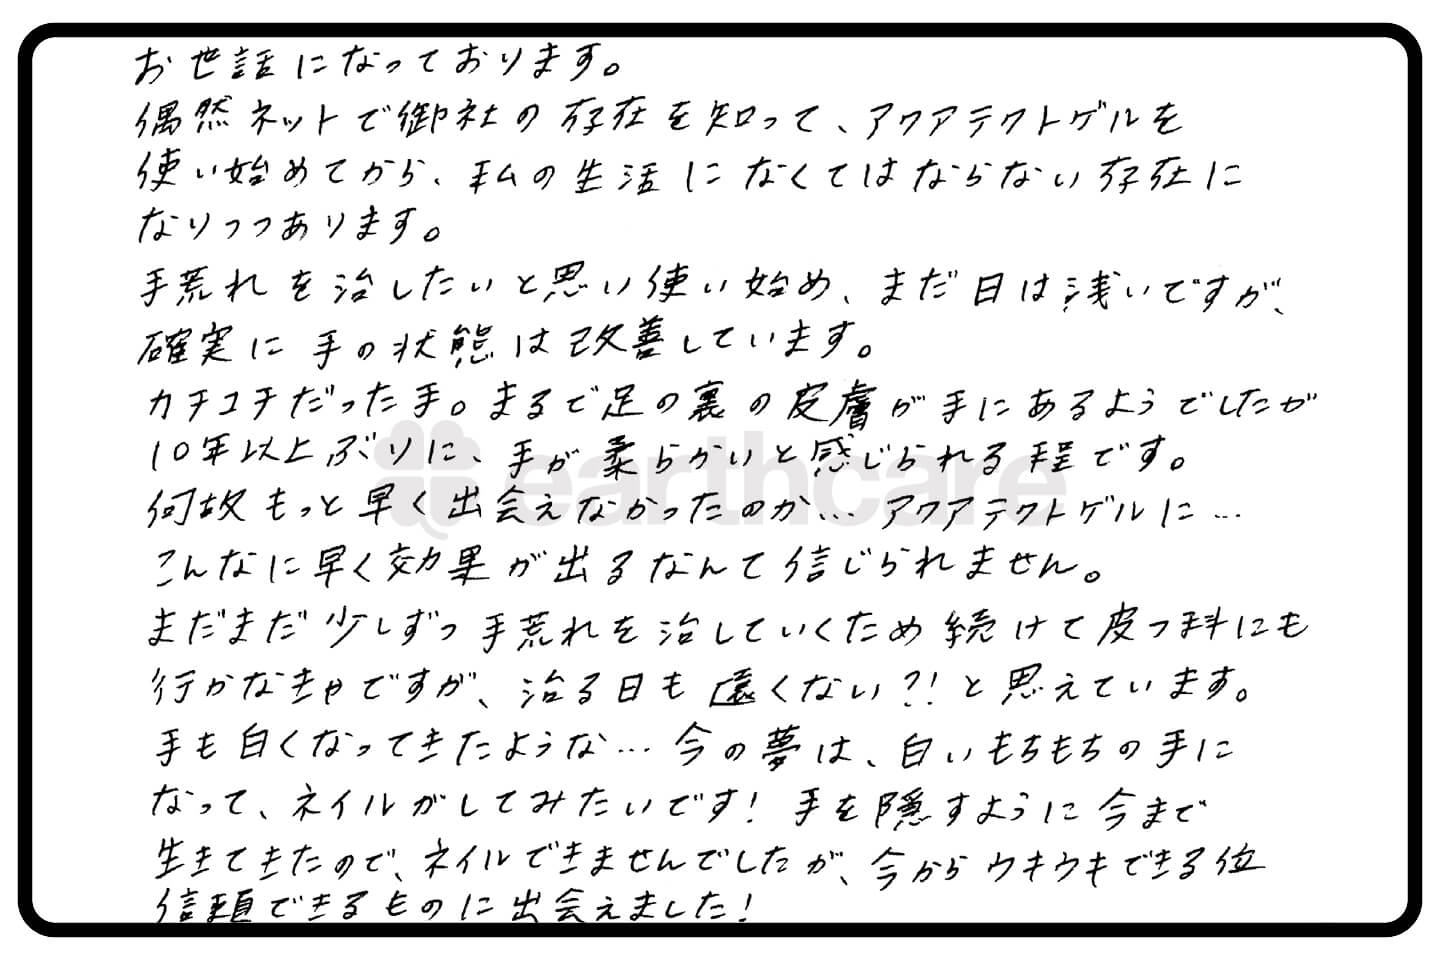 お世話になっております。
偶然ネットで御社の存在を知って、アクアテクトゲルを
使い始めてから、私の生活になくてはならない存在に
なりつつあります。
手荒れを治したいと思い使い始め、まだ日は浅いですが、
確実に手の状態は改善しています。
カチコチだった手。まるで足の裏の皮膚が手にあるようでしたが
10年以上ぶりに、手が柔らかいと感じられる程です。
何故もっと早く出会えなかったのか… アクアテクトゲルに…
こんなに早く効果が出るなんて信じられません。
まだまだ少しずつ手荒れを治していくため続けて皮フ科にも
行かなきゃですが、治る日も遠くない?!と思えています。
手も白くなってきたような… 今の夢は、白いもちもちの手に
なって、ネイルがしてみたいです! 手を隠すように今まで
生きてきたので、ネイルできませんでしたが、今からウキウキできる位
信頼できるものに出会えました!
earthcare